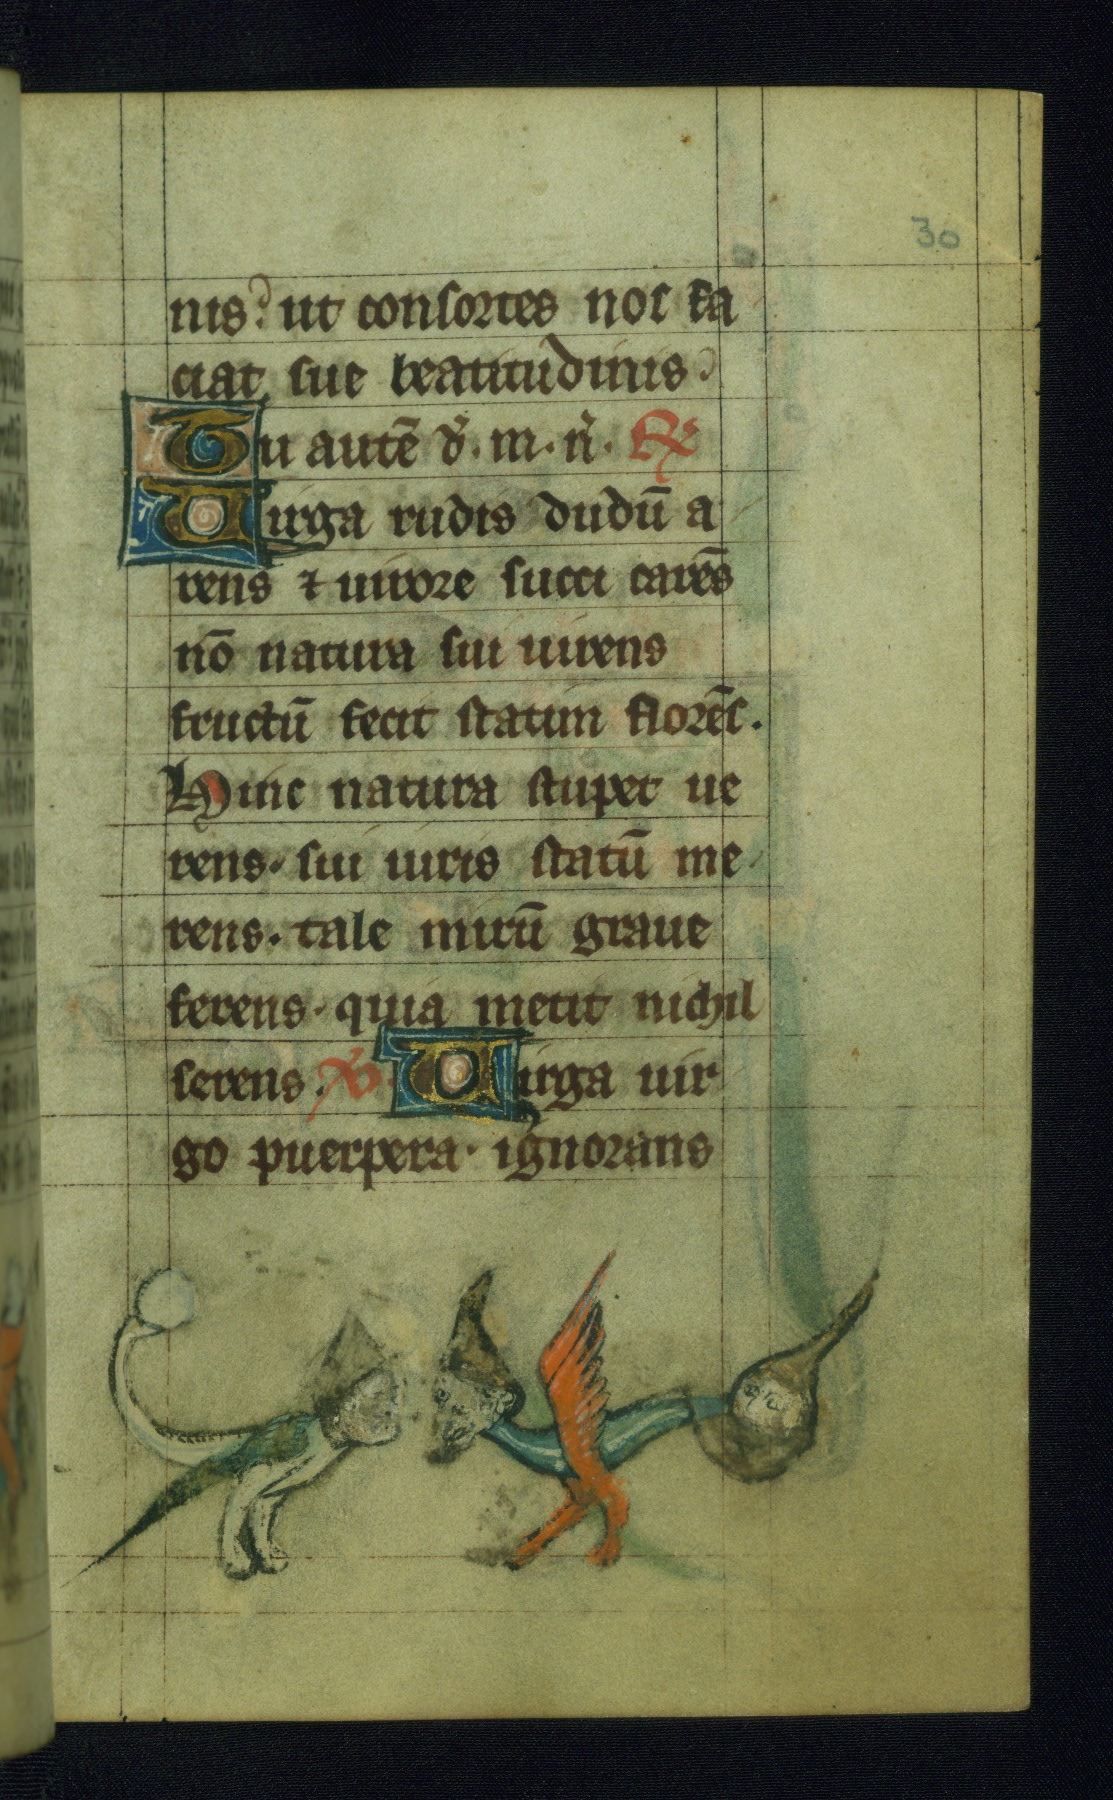 30
nis? ut consortes nos fa
ciat sue beatitudinis
Tu autē d̄. m. n̄. R̸
Uirga rudis dudū a
rens ⁊ uirore succi carēs
nō natura sui uirens
fructū fecit statim florēs.
Hinc natura stupet ue
rens. sui iuris statū me
rens. tale mirū graue
ferens. quia metit nichil
serens. V̸. Uirga uir
go puerpera. ignorans